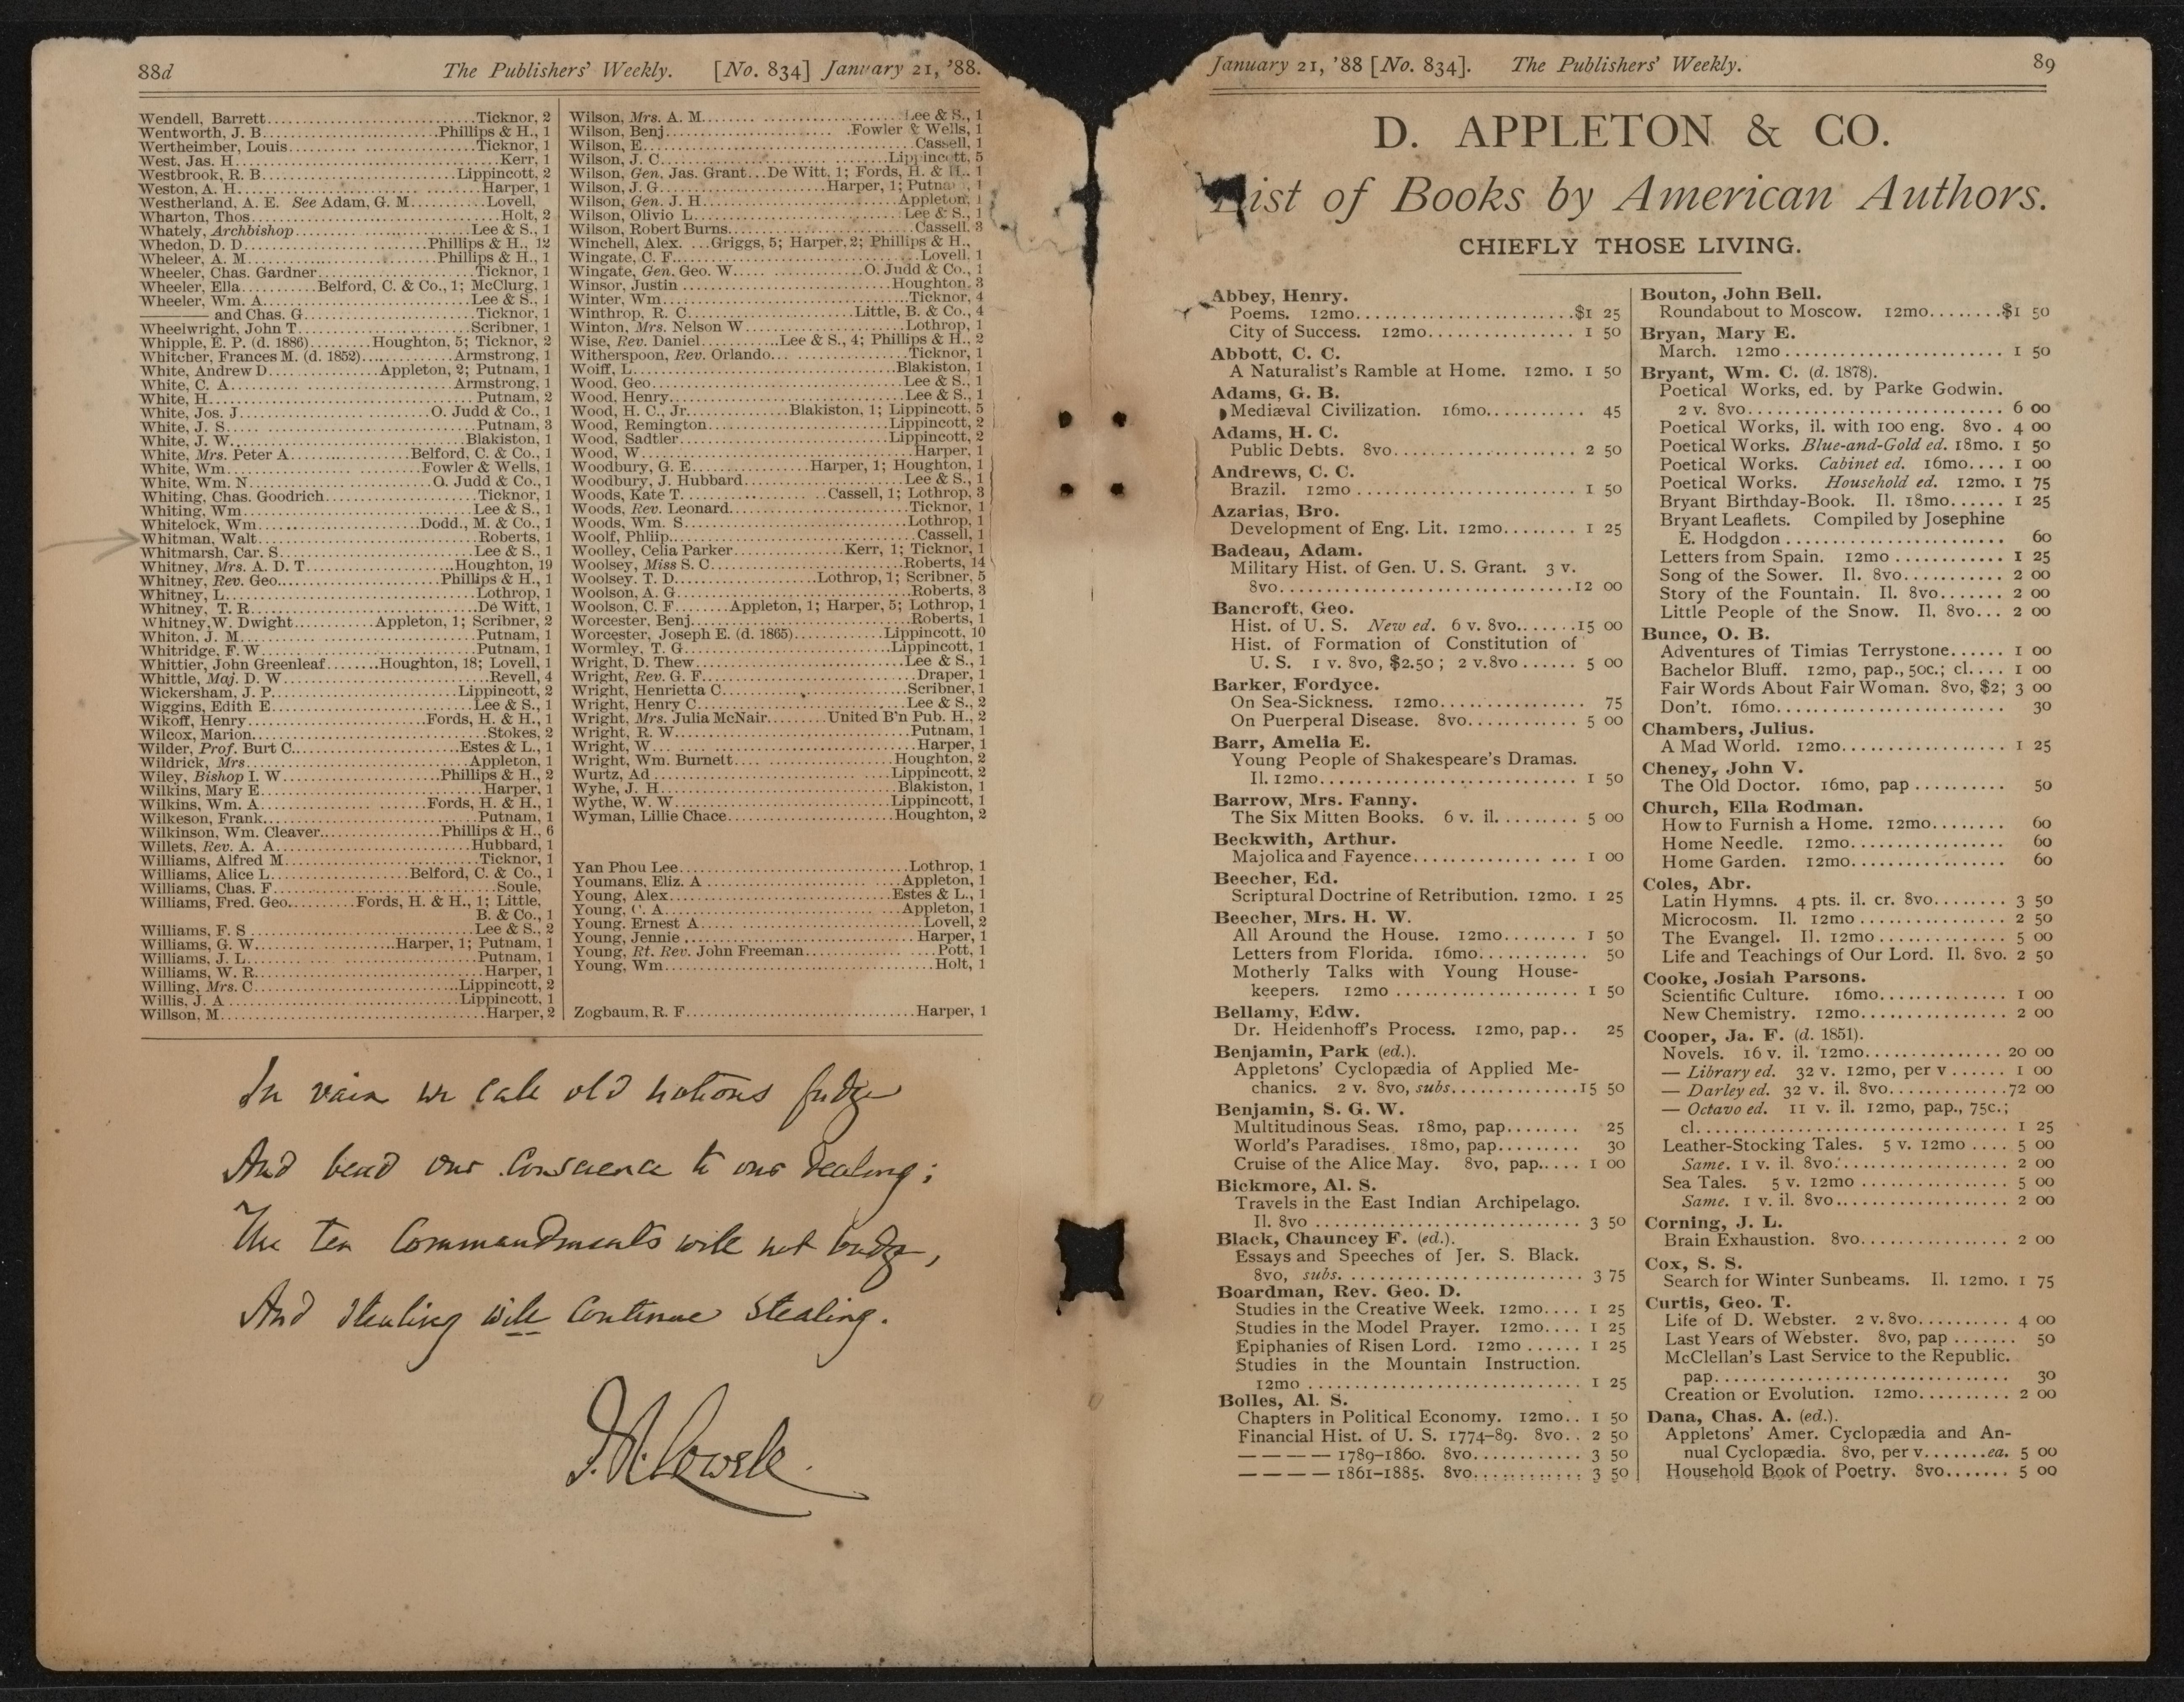 88d The Publishers' Weekly. [No. 834] January 21, '88.
Wendell, Barrett..........Ticknor, 2
Wentworth, J. B..........Phillips & H., 1
Wertheimber, Louis..........Ticknor, 1
West, Jas. H..........Kerr, 1
Westbrook, R. B..........Lippincott, 2
Weston, A. H..........Harper, 1
Westherland, A. E. See Adam, G. M..........Lovell,
Wharton, Thos..........Holt, 2
Whately, Archbishop..........Lee & S., 1
Whedon, D. D..........Phillips & H., 12
Wheleer, A. M..........Phillips & H., 1
Wheeler, Chas. Gardner..........Ticknor, 1
Wheeler, Ella..........Belford, C. & Co., 1; McClurg, 1
Wheeler, Wm. A..........Lee & S., 1
——— and Chas. G..........Ticknor, 1
Wheelwright, John T..........Scribner, 1
Whipple, E. P. (d. 1886)..........Houghton, 5; Ticknor, 2
Whitcher, Frances M. (d. 1852)..........Armstrong, 1
White, Andrew D..........Appleton, 2; Putnam, 1
White, C. A..........Armstrong, 1
White, H..........Putnam, 2
White, Jos. J..........O. Judd & Co., 1
White, J. S..........Putnam, 3
White, J. W..........Blakiston, 1
White, Mrs. Peter A..........Belford, C. & Co., 1
White, Wm..........Fowler & Wells, 1
White, Wm. N..........O. Judd & Co., 1
Whiting, Chas. Goodrich..........Ticknor, 1
Whiting, Wm..........Lee & S., 1
Whitelock, Wm..........Dodd., M. & Co., 1
Whitman, Walt..........Roberts, 1
Whitmarsh, Car. S..........Lee & S., 1
Whitney, Mrs. A. D. T..........Houghton, 19
Whitney, Rev. Geo..........Phillips & H., 1
Whitney, L..........Lothrop, 1
Whitney, T. R..........De Witt, 1
Whitney, W. Dwight..........Appleton, 1; Scribner, 2
Whiton, J. M..........Putnam, 1
Whitridge, F. W..........Putnam, 1
Whittier, John Greenleaf..........Houghton, 18; Lovell, 1
Whittle, Maj. D. W..........Revell, 4
Wickersham, J. P..........Lippincott, 2
Wiggins, Edith E..........Lee & S., 1
Wikoff, Henry..........Fords, H. & H., 1
Wilcox, Marion..........Stokes, 2
Wilder, Prof. Burt C..........Estes & L., 1
Wildrick, Mrs..........Appleton, 1
Wiley, Bishop I. W..........Phillips & H., 2
Wilkins, Mary E..........Harper, 1
Wilkins, Wm. A..........Fords, H. & H., 1
Wilkeson, Frank..........Putnam, 1
Wilkinson, Wm. Cleaver..........Phillips & H., 6
Willets, Rev. A. A..........Hubbard, 1
Williams, Alfred M..........Ticknor, 1
Williams, Alice L..........Belford, C. & Co., 1
Williams, Chas. F..........Soule,
Williams, Fred. Geo..........Fords, H. & H., 1; Little,
B. & Co., 1
Williams, F. S..........Lee & S., 2
Williams, G. W..........Harper, 1; Putnam, 1
Williams, J. L..........Putnam, 1
Williams, W. R..........Harper, 1
Willing, Mrs. C..........Lippincott, 2
Willis, J. A..........Lippincott, 1
Willson, M..........Harper, 2
Wilson, Mrs. A. M..........Lee & S., 1
Wilson, Benj..........Fowler & Wells, 1
Wilson, E..........Cassell, 1
Wilson, J. C..........Lippincott, 5
Wilson, Gen. Jas. Grant...De Witt, 1; Fords, H. & H., 1
Wilson, J. G..........Harper, 1; Putnam, 1
Wilson, Gen. J. H..........Appleton, 1
Wilson, Olivio L..........Lee & S., 1
Wilson, Robert Burns..........Cassell, 3
Winchell, Alex. ...Griggs, 5; Harper, 2; Phillips & H.,
Wingate, C. F..........Lovell, 1
Wingate, Gen. Geo. W..........O. Judd & Co., 1
Winsor, Justin..........Houghton, 3
Winter, Wm..........Ticknor, 4
Winthrop, R. C..........Little, B. & Co., 4
Winton, Mrs. Nelson W..........Lothrop, 1
Wise, Rev. Daniel..........Lee & S., 4; Phillips & H., 2
Witherspoon, Rev. Orlando..........Ticknor, 1
Woiff, L..........Blakiston, 1
Wood, Geo..........Lee & S., 1
Wood, Henry..........Lee & S., 1
Wood, H. C., Jr..........Blakiston, 1; Lippincott, 5
Wood, Remington..........Lippincott, 2
Wood, Sadtler..........Lippincott, 2
Wood, W..........Harper, 1
Woodbury, G. E..........Harper, 1; Houghton, 1
Woodbury, J. Hubbard..........Lee & S., 1
Woods, Kate T..........Cassell, 1; Lothrop, 3
Woods, Rev. Leonard..........Ticknor, 1
Woods, Wm. S..........Lothrop, 1
Woolf, Phliip..........Cassell, 1
Woolley, Celia Parker..........Kerr, 1; Ticknor, 1
Woolsey, Miss S. C..........Roberts, 14
Woolsey. T. D..........Lothrop, 1; Scribner, 5
Woolson, A. G..........Roberts, 3
Woolson, C. F..........Appleton, 1; Harper, 5; Lothrop, 1
Worcester, Benj..........Roberts, 1
Worcester, Joseph E. (d. 1865)..........Lippincott, 10
Wormley, T. G..........Lippincott, 1
Wright, D. Thew..........Lee & S., 1
Wright, Rev. G. F..........Draper, 1
Wright, Henrietta C..........Scribner, 1
Wright, Henry C..........Lee & S., 2
Wright, Mrs. Julia McNair..........United B'n Pub. H., 2
Wright, R. W..........Putnam, 1
Wright, W..........Harper, 1
Wright, Wm. Burnett..........Houghton, 2
Wurtz, Ad..........Lippincott, 2
Wyhe, J. H..........Blakiston, 1
Wythe, W. W..........Lippincott, 1
Wyman, Lillie Chace..........Houghton, 2
Yan Phou Lee..........Lothrop, 1
Youmans, Eliz. A..........Appleton, 1
Young, Alex..........Estes & L., 1
Young, C. A..........Appleton, 1
Young. Ernest A..........Lovell, 2
Young, Jennie..........Harper, 1
Young, Rt. Rev. John Freeman..........Pott, 1
Young, Wm..........Holt, 1
Zogbaum, R. F..........Harper, 1
In vain we call old notions fudge
And bend our conscience to our dealing;
The ten Commandments will not budge,
And stealing will continue stealing.
J. R. Lowell.
January 21, '88 [No. 834]. The Publishers' Weekly. 89
D. APPLETON & CO.
List of Books by American Authors.
CHIEFLY THOSE LIVING.
Abbey, Henry.
Poems. 12mo..........$1 25
City of Success. 12mo..........1 50
Abbott, C. C.
A Naturalist's Ramble at Home. 12mo. 1 50
Adams, G. B.
Mediæval Civilization. 16mo..........45
Adams, H. C.
Public Debts. 8vo..........2 50
Andrews, C. C.
Brazil. 12mo..........1 50
Azarias, Bro.
Development of Eng. Lit. 12mo..........1 25
Badeau, Adam.
Military Hist. of Gen. U. S. Grant. 3 v.
8vo..........12 00
Bancroft, Geo.
Hist. of U. S. New ed. 6 v. 8vo..........15 00
Hist. of Formation of Constitution of
U. S. 1 v. 8vo, $2.50; 2 v. 8vo......5 00
Barker, Fordyce.
On Sea-Sickness. 12mo..........75
On Puerperal Disease. 8vo..........5 00
Barr, Amelia E.
Young People of Shakespeare's Dramas.
Il. 12mo..........1 50
Barrow, Mrs. Fanny.
The Six Mitten Books. 6 v. il..........5 00
Beckwith, Arthur.
Majolica and Fayence..........1 00
Beecher, Ed.
Scriptural Doctrine of Retribution. 12mo. 1 25
Beecher, Mrs. H. W.
All Around the House. 12mo..........1 50
Letters from Florida. 16mo..........50
Motherly Talks with Young House-
keepers. 12mo..........1 50
Bellamy, Edw.
Dr. Heidenhoff's Process. 12mo, pap.. 25
Benjamin, Park (ed.).
Appletons' Cyclopædia of Applied Me-
chanics. 2 v. 8vo, subs..........15 50
Benjamin, S. G. W.
Multitudinous Seas. 18mo, pap..........25
World's Paradises. 18mo, pap..........30
Cruise of the Alice May. 8vo, pap.....1 00
Bickmore, Al. S.
Travels in the East Indian Archipelago.
Il. 8vo..........3 50
Black, Chauncey F. (ed.).
Essays and Speeches of Jer. S. Black.
8vo, subs...........3 75
Boardman, Rev. Geo. D.
Studies in the Creative Week. 12mo....1 25
Studies in the Model Prayer. 12mo....1 25
Epiphanies of Risen Lord. 12mo......1 25
Studies in the Mountain Instruction.
12mo..........1 25
Bolles, Al. S.
Chapters in Political Economy. 12mo..1 50
Financial Hist. of U. S. 1774-89. 8vo..2 50
— — — — 1789-1860. 8vo..........3 50
— — — — 1861-1885. 8vo..........3 50
Bouton, John Bell.
Roundabout to Moscow. 12mo........$1 50
Bryan, Mary E.
March. 12mo..........1 50
Bryant, Wm. C. (d. 1878).
Poetical Works, ed. by Parke Godwin.
2 v. 8vo..........6 00
Poetical Works, il. with 100 eng. 8vo. 4 00
Poetical Works. Blue-and-Gold ed. 18mo. 1 50
Poetical Works. Cabinet ed. 16mo....1 00
Poetical Works. Household ed. 12mo. 1 75
Bryant Birthday-Book. Il. 18mo......1 25
Bryant Leaflets. Compiled by Josephine
E. Hodgdon..........60
Letters from Spain. 12mo..........1 25
Song of the Sower. Il. 8vo..........2 00
Story of the Fountain. Il. 8vo.......2 00
Little People of the Snow. Il. 8vo...2 00
Bunce, O. B.
Adventures of Timias Terrystone......1 00
Bachelor Bluff. 12mo, pap., 50c.; cl....1 00
Fair Words About Fair Woman. 8vo, $2; 3 00
Don't. 16mo..........30
Chambers, Julius.
A Mad World. 12mo..........1 25
Cheney, John V.
The Old Doctor. 16mo, pap..........50
Church, Ella Rodman.
How to Furnish a Home. 12mo........60
Home Needle. 12mo..........60
Home Garden. 12mo..........60
Coles, Abr.
Latin Hymns. 4 pts. il. cr. 8vo........3 50
Microcosm. Il. 12mo..........2 50
The Evangel. Il. 12mo..........5 00
Life and Teachings of Our Lord. Il. 8vo. 2 50
Cooke, Josiah Parsons.
Scientific Culture. 16mo..........1 00
New Chemistry. 12mo..........2 00
Cooper, Ja. F. (d. 1851).
Novels. 16 v. il. 12mo..........20 00
— Library ed. 32 v. 12mo, per v......1 00
— Darley ed. 32 v. il. 8vo..........72 00
— Octavo ed. 11 v. il. 12mo, pap., 75c.;
cl..........1 25
Leather-Stocking Tales. 5 v. 12mo....5 00
Same. 1 v. il. 8vo..........2 00
Sea Tales. 5 v. 12mo..........5 00
Same. 1 v. il. 8vo..........2 00
Corning, J. L.
Brain Exhaustion. 8vo..........2 00
Cox, S. S.
Search for Winter Sunbeams. Il. 12mo. 1 75
Curtis, Geo. T.
Life of D. Webster. 2 v. 8vo..........4 00
Last Years of Webster. 8vo, pap.......50
McClellan's Last Service to the Republic.
pap..........30
Creation or Evolution. 12mo..........2 00
Dana, Chas. A. (ed.).
Appletons' Amer. Cyclopædia and An-
nual Cyclopædia. 8vo, per v.......ea. 5 00
Household Book of Poetry. 8vo.......5 00